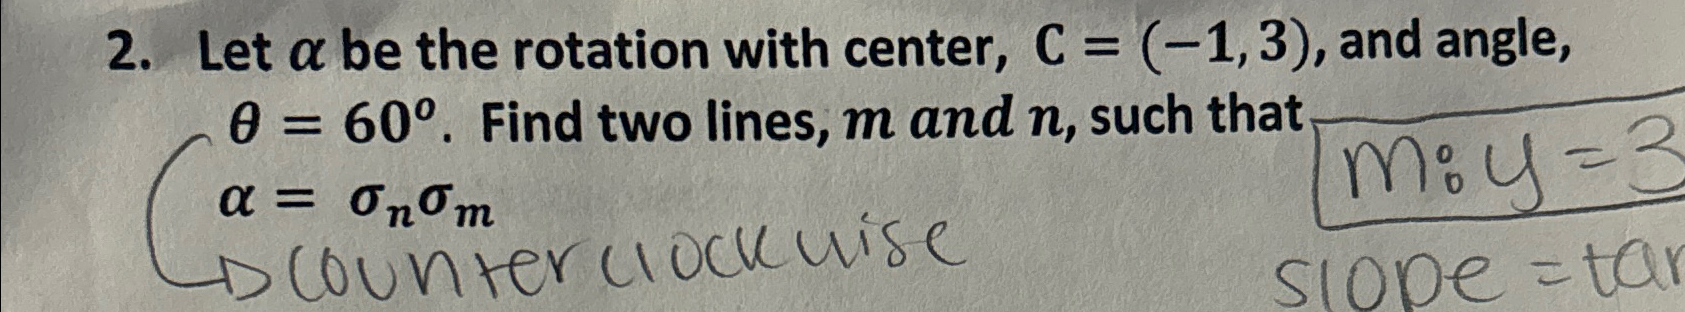 2. Let α be the rotation with center, C = (−1, 3), and angle,
θ = 60°. Find two lines, m and n, such that
m: y = 3
α = σₙσₘ
counterclockwise
slope = tan